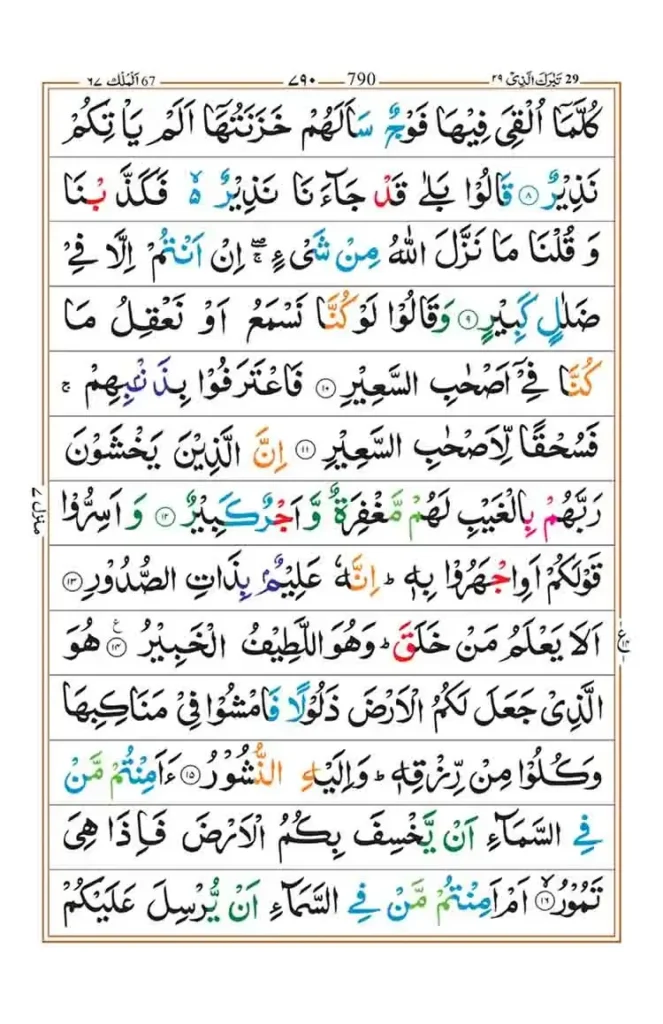 29 تَبٰرَكَ الَّذِیْ ٢٩
790 ٧٩٠
67 اَلْمُلْك ٦٧
كُلَّمَاۤ اُلْقِیَ فِیْهَا فَوْجٌ سَاَلَهُمْ خَزَنَتُهَاۤ اَلَمْ یَاْتِكُمْ
نَذِیْرٌ ۝٨ قَالُوْا بَلٰی قَدْ جَآءَنَا نَذِیْرٌ ۙ۬ فَكَذَّبْنَا
وَ قُلْنَا مَا نَزَّلَ اللّٰهُ مِنْ شَیْءٍ ۚۖ اِنْ اَنْتُمْ اِلَّا فِیْ
ضَلٰلٍ كَبِیْرٍ ۝٩ وَقَالُوْا لَوْ كُنَّا نَسْمَعُ اَوْ نَعْقِلُ مَا
كُنَّا فِیْۤ اَصْحٰبِ السَّعِیْرِ ۝١٠ فَاعْتَرَفُوْا بِذَنْۢبِهِمْ ۚ
فَسُحْقًا لِّاَصْحٰبِ السَّعِیْرِ ۝١١ اِنَّ الَّذِیْنَ یَخْشَوْنَ
رَبَّهُمْ بِالْغَیْبِ لَهُمْ مَّغْفِرَةٌ وَّاَجْرٌ كَبِیْرٌ ۝١٢ وَ اَسِرُّوْا
قَوْلَكُمْ اَوِاجْهَرُوْا بِهٖ ؕ اِنَّهٗ عَلِیْمٌۢ بِذَاتِ الصُّدُوْرِ ۝١٣
اَلَا یَعْلَمُ مَنْ خَلَقَ ؕ وَهُوَ اللَّطِیْفُ الْخَبِیْرُ ۝١٤ هُوَ
الَّذِیْ جَعَلَ لَكُمُ الْاَرْضَ ذَلُوْلًا فَامْشُوْا فِیْ مَنَاكِبِهَا
وَكُلُوْا مِنْ رِّزْقِهٖ ؕ وَاِلَیْهِ النُّشُوْرُ ۝١٥ ءَاَمِنْتُمْ مَّنْ
فِی السَّمَآءِ اَنْ یَّخْسِفَ بِكُمُ الْاَرْضَ فَاِذَا هِیَ
تَمُوْرُ ۝١٦ۙ اَمْ اَمِنْتُمْ مَّنْ فِی السَّمَآءِ اَنْ یُّرْسِلَ عَلَیْكُمْ
منزل ٧